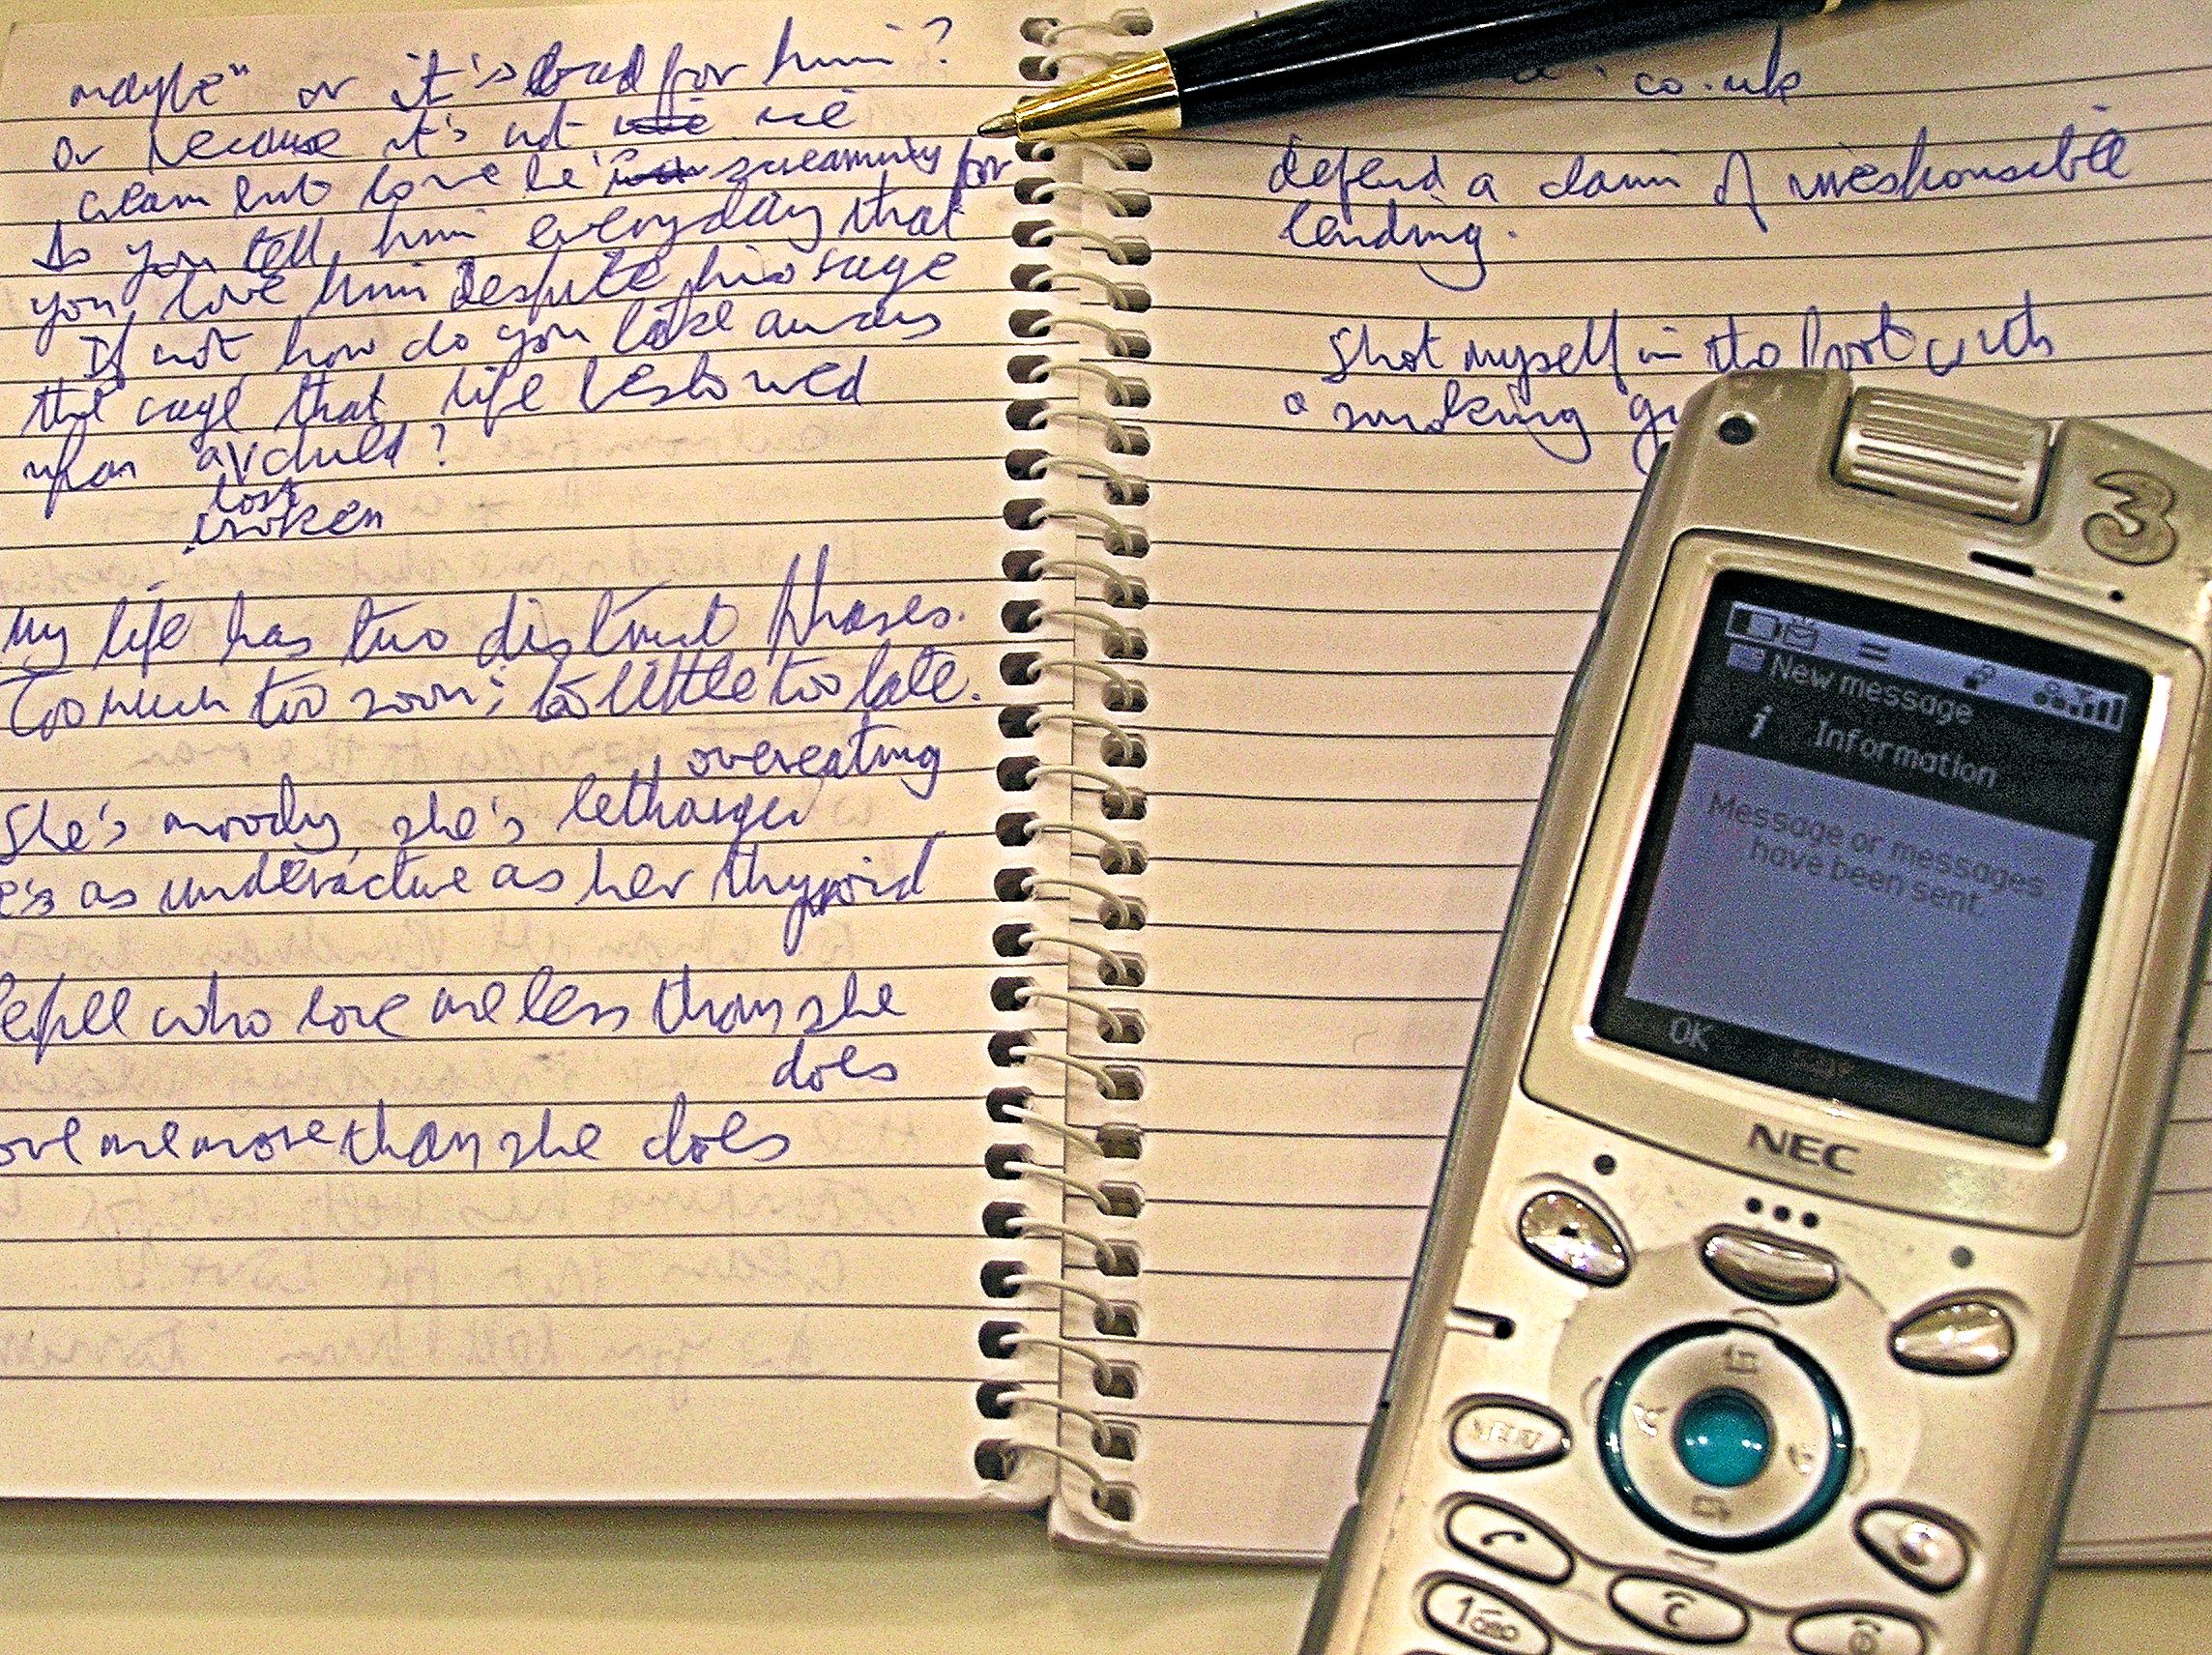 maybe" or it's bad for him?
or because it's not ice
cream but love he's screaming for
do you tell him everyday that
you love him despite his rage
If not, how do you take away
the rage that life bestowed
upon a child?
lost
broken
My life has two distinct phases.
Too much too soon; too little too late.
overeating
She's moody, she's lethargic
as underactive as her thyroid
who love me less than she
does
love me more than she does
co.uk
defend a claim of irresponsible
lending.
Shot myself in the foot with
a smoking
3
New message
i Information
Message or messages
have been sent.
OK
NEC
MENU
1